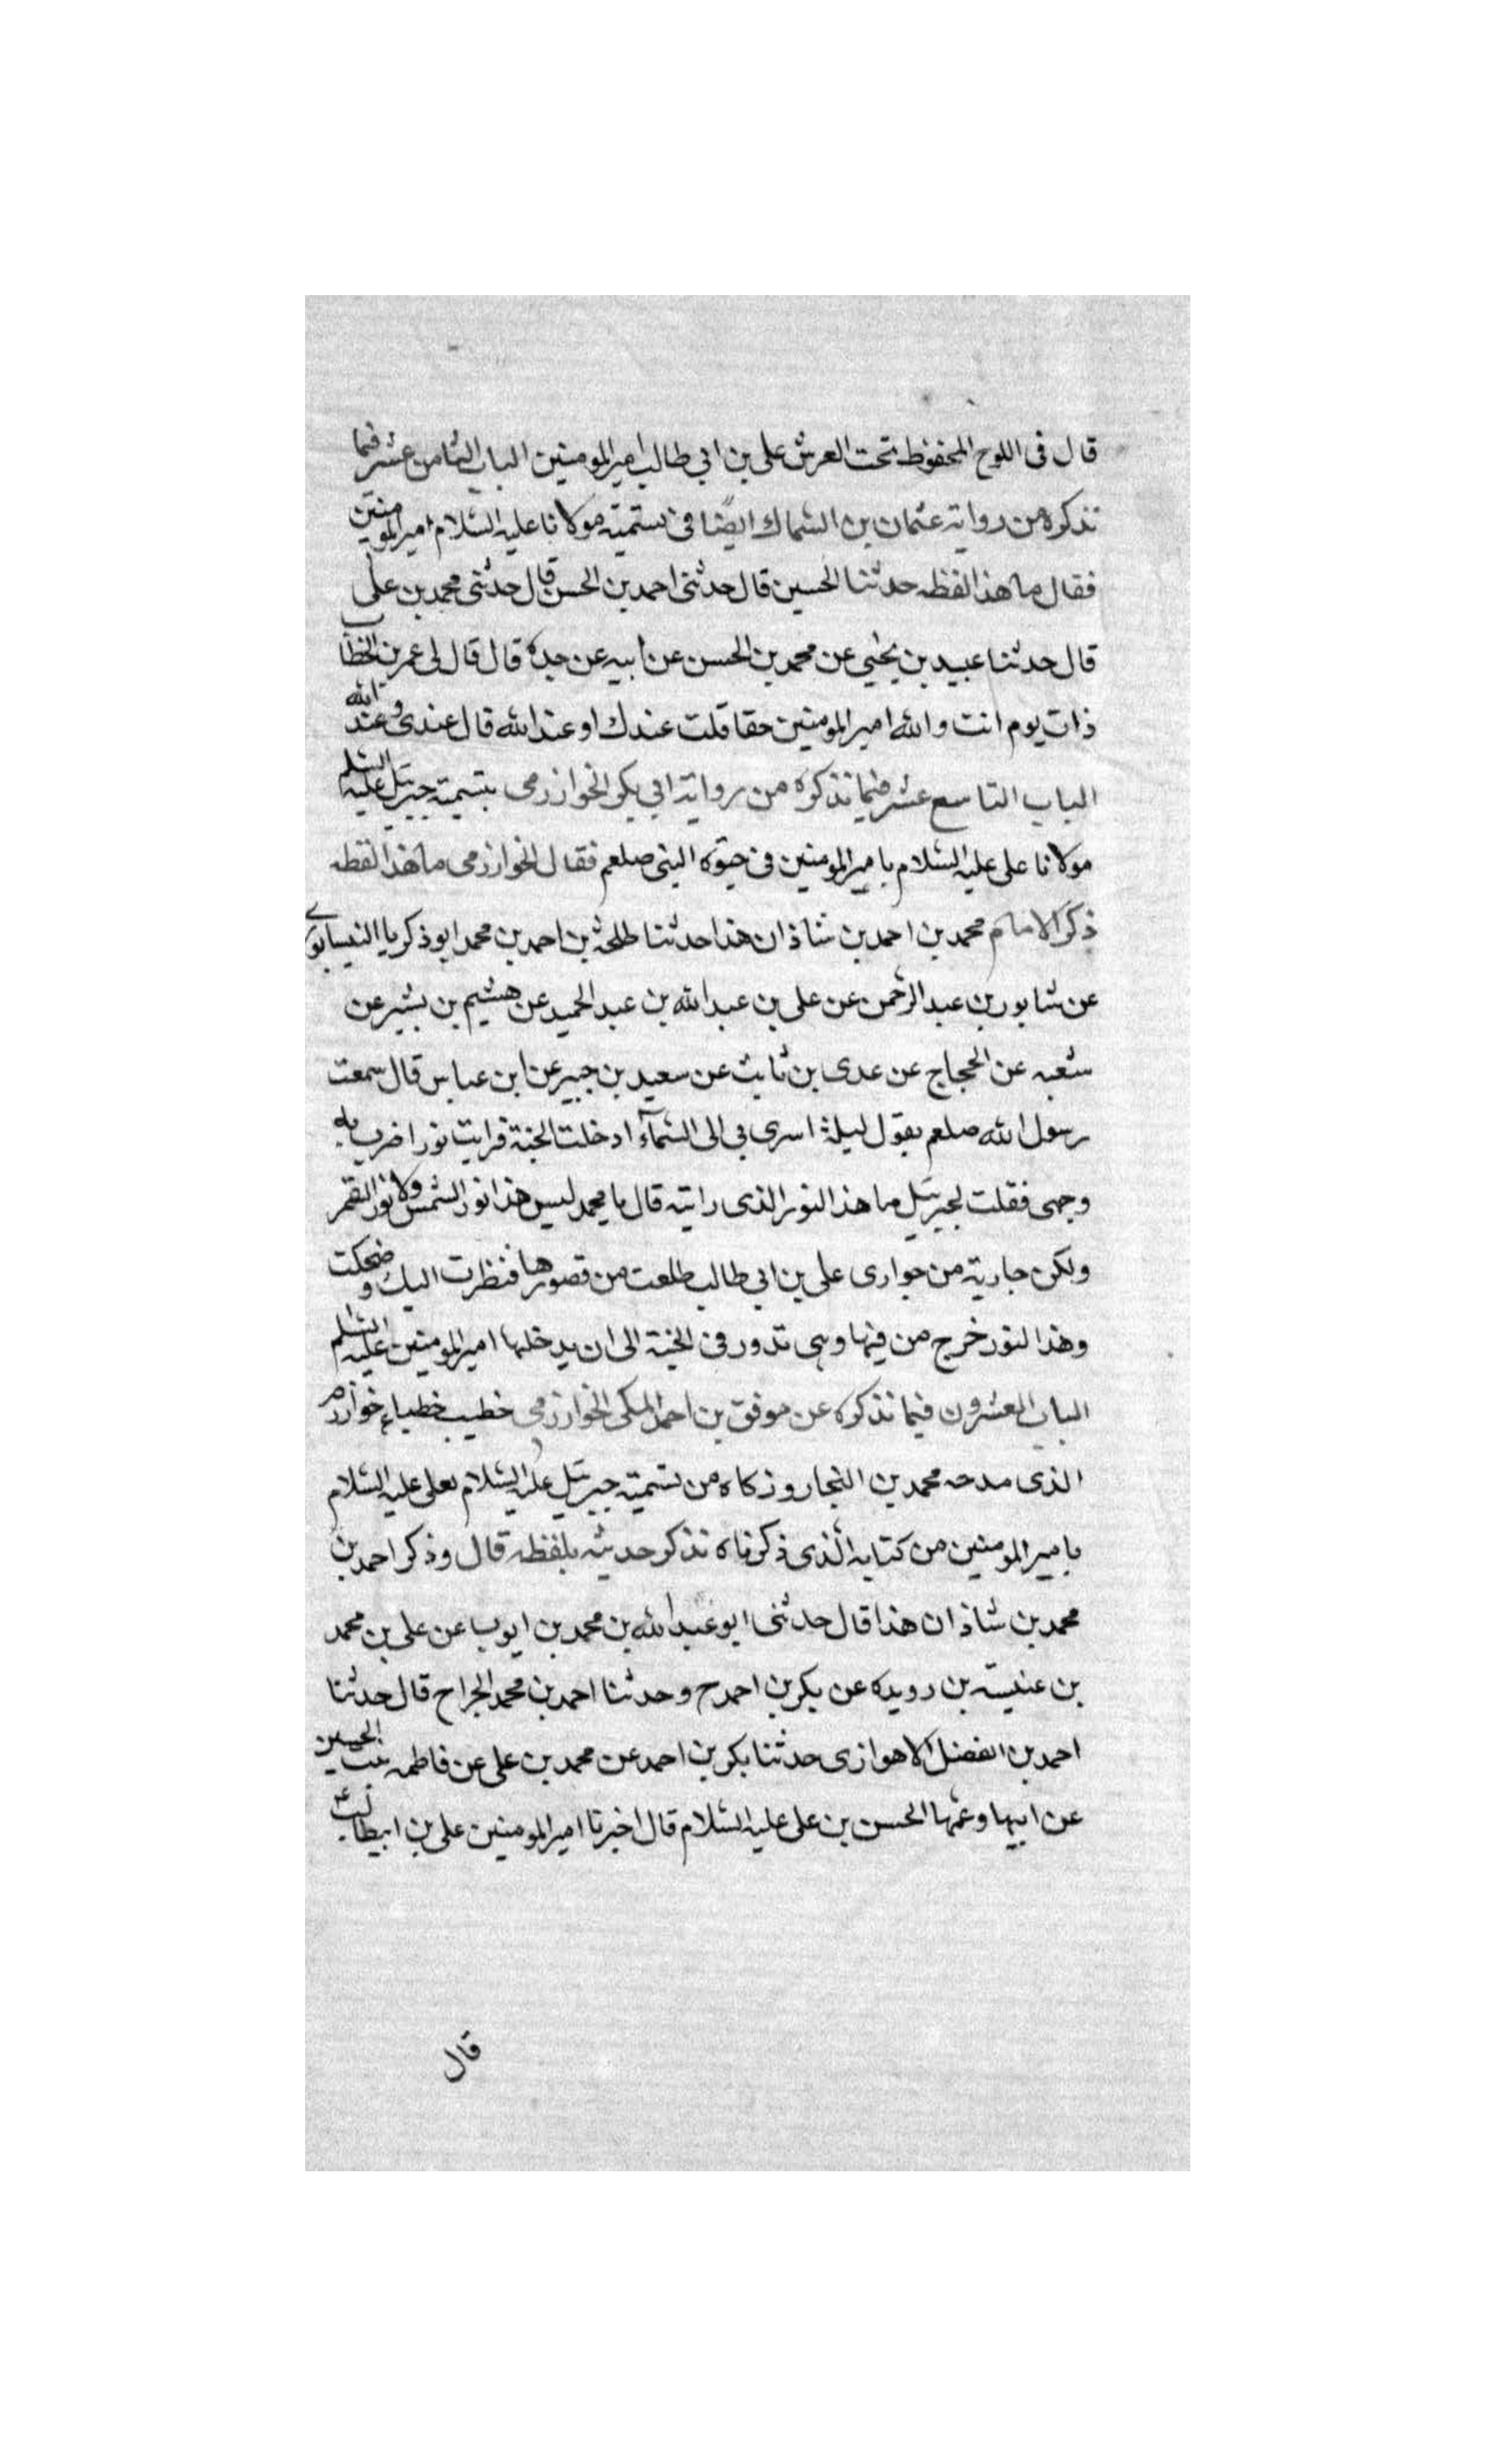 قال فى اللوح المحفوظ تحت العرش على بن ابي طالب امير المومنين الباب الثامن عشر فيما
نذكره من رواية عثمان بن السماك ايضًا فى تسميته مولانا عليه السلام امير المومنين
فقال ما هذا لفظه حدثنا الحسين قال حدثنى احمد بن الحسن قال حدثنى محمد بن على
قال حدثنا عبيد بن يحيي عن محمد بن الحسن عن ابيه عن جده قال قال لى عمر بن الخطاب
ذات يوم انت والله امير المومنين حقا قلت عندك او عند الله قال عندى و عند الله
الباب التاسع عشر فيما نذكره من رواية ابي بكر الخوارزمى بتسمية جبرئيل عليه السلم
مولانا على عليه السلام بامير المومنين فى حيوه النبى صلعم فقال الخوارزمى ما هذا لفظه
ذكر الامام محمد بن احمد بن شاذان هذا حدثنا طلحة بن احمد بن محمد ابو ذكريا النيسابورى
عن شابور بن عبد الرحمن عن على بن عبد الله بن عبد الحميد عن هشيم بن بشير عن
شعبه عن الحجاج عن عدى بن ثابت عن سعيد بن جبير عن ابن عباس قال سمعت
رسول الله صلعم يقول ليلة اسرى بي الى السمآء ادخلت الجنة فرايت نورا ضرب به
وجهى فقلت لجبرئيل ما هذا النور الذى رايته قال يا محمد ليس هذا نور الشمس ولا نور القمر
ولكن جارية من جوارى على بن ابي طالب طلعت من قصورها فنظرت اليك و ضحكت
وهذا النور خرج من فيها وهى تدور فى الجنة الى ان يدخلها امير المومنين عليه السلم
الباب العشرون فيما نذكره عن موفق بن احمد المكى الخوارزمى خطيب خطباء خوارزم
الذى مدحه محمد بن النجار و زكاه من تسمية جبرئيل عليه السلام لعلى عليه السلام
بامير المومنين من كتابه الذى ذكرناه نذكر حديثه بلفظه قال وذكر احمد بن
محمد بن شاذان هذا قال حدثنى ابو عبد الله بن محمد بن ايوب عن على بن محمد
بن عنبسة بن رويده عن بكر بن احمد ح وحدثنا احمد بن محمد الجراح قال حدثنا
احمد بن الفضل الاهوازى حدثنا بكر بن احمد عن محمد بن على عن فاطمه بنت الحسين
عن ابيها وعمها الحسن بن على عليه السلام قال اخبرنا امير المومنين على بن ابيطالب ع
قال